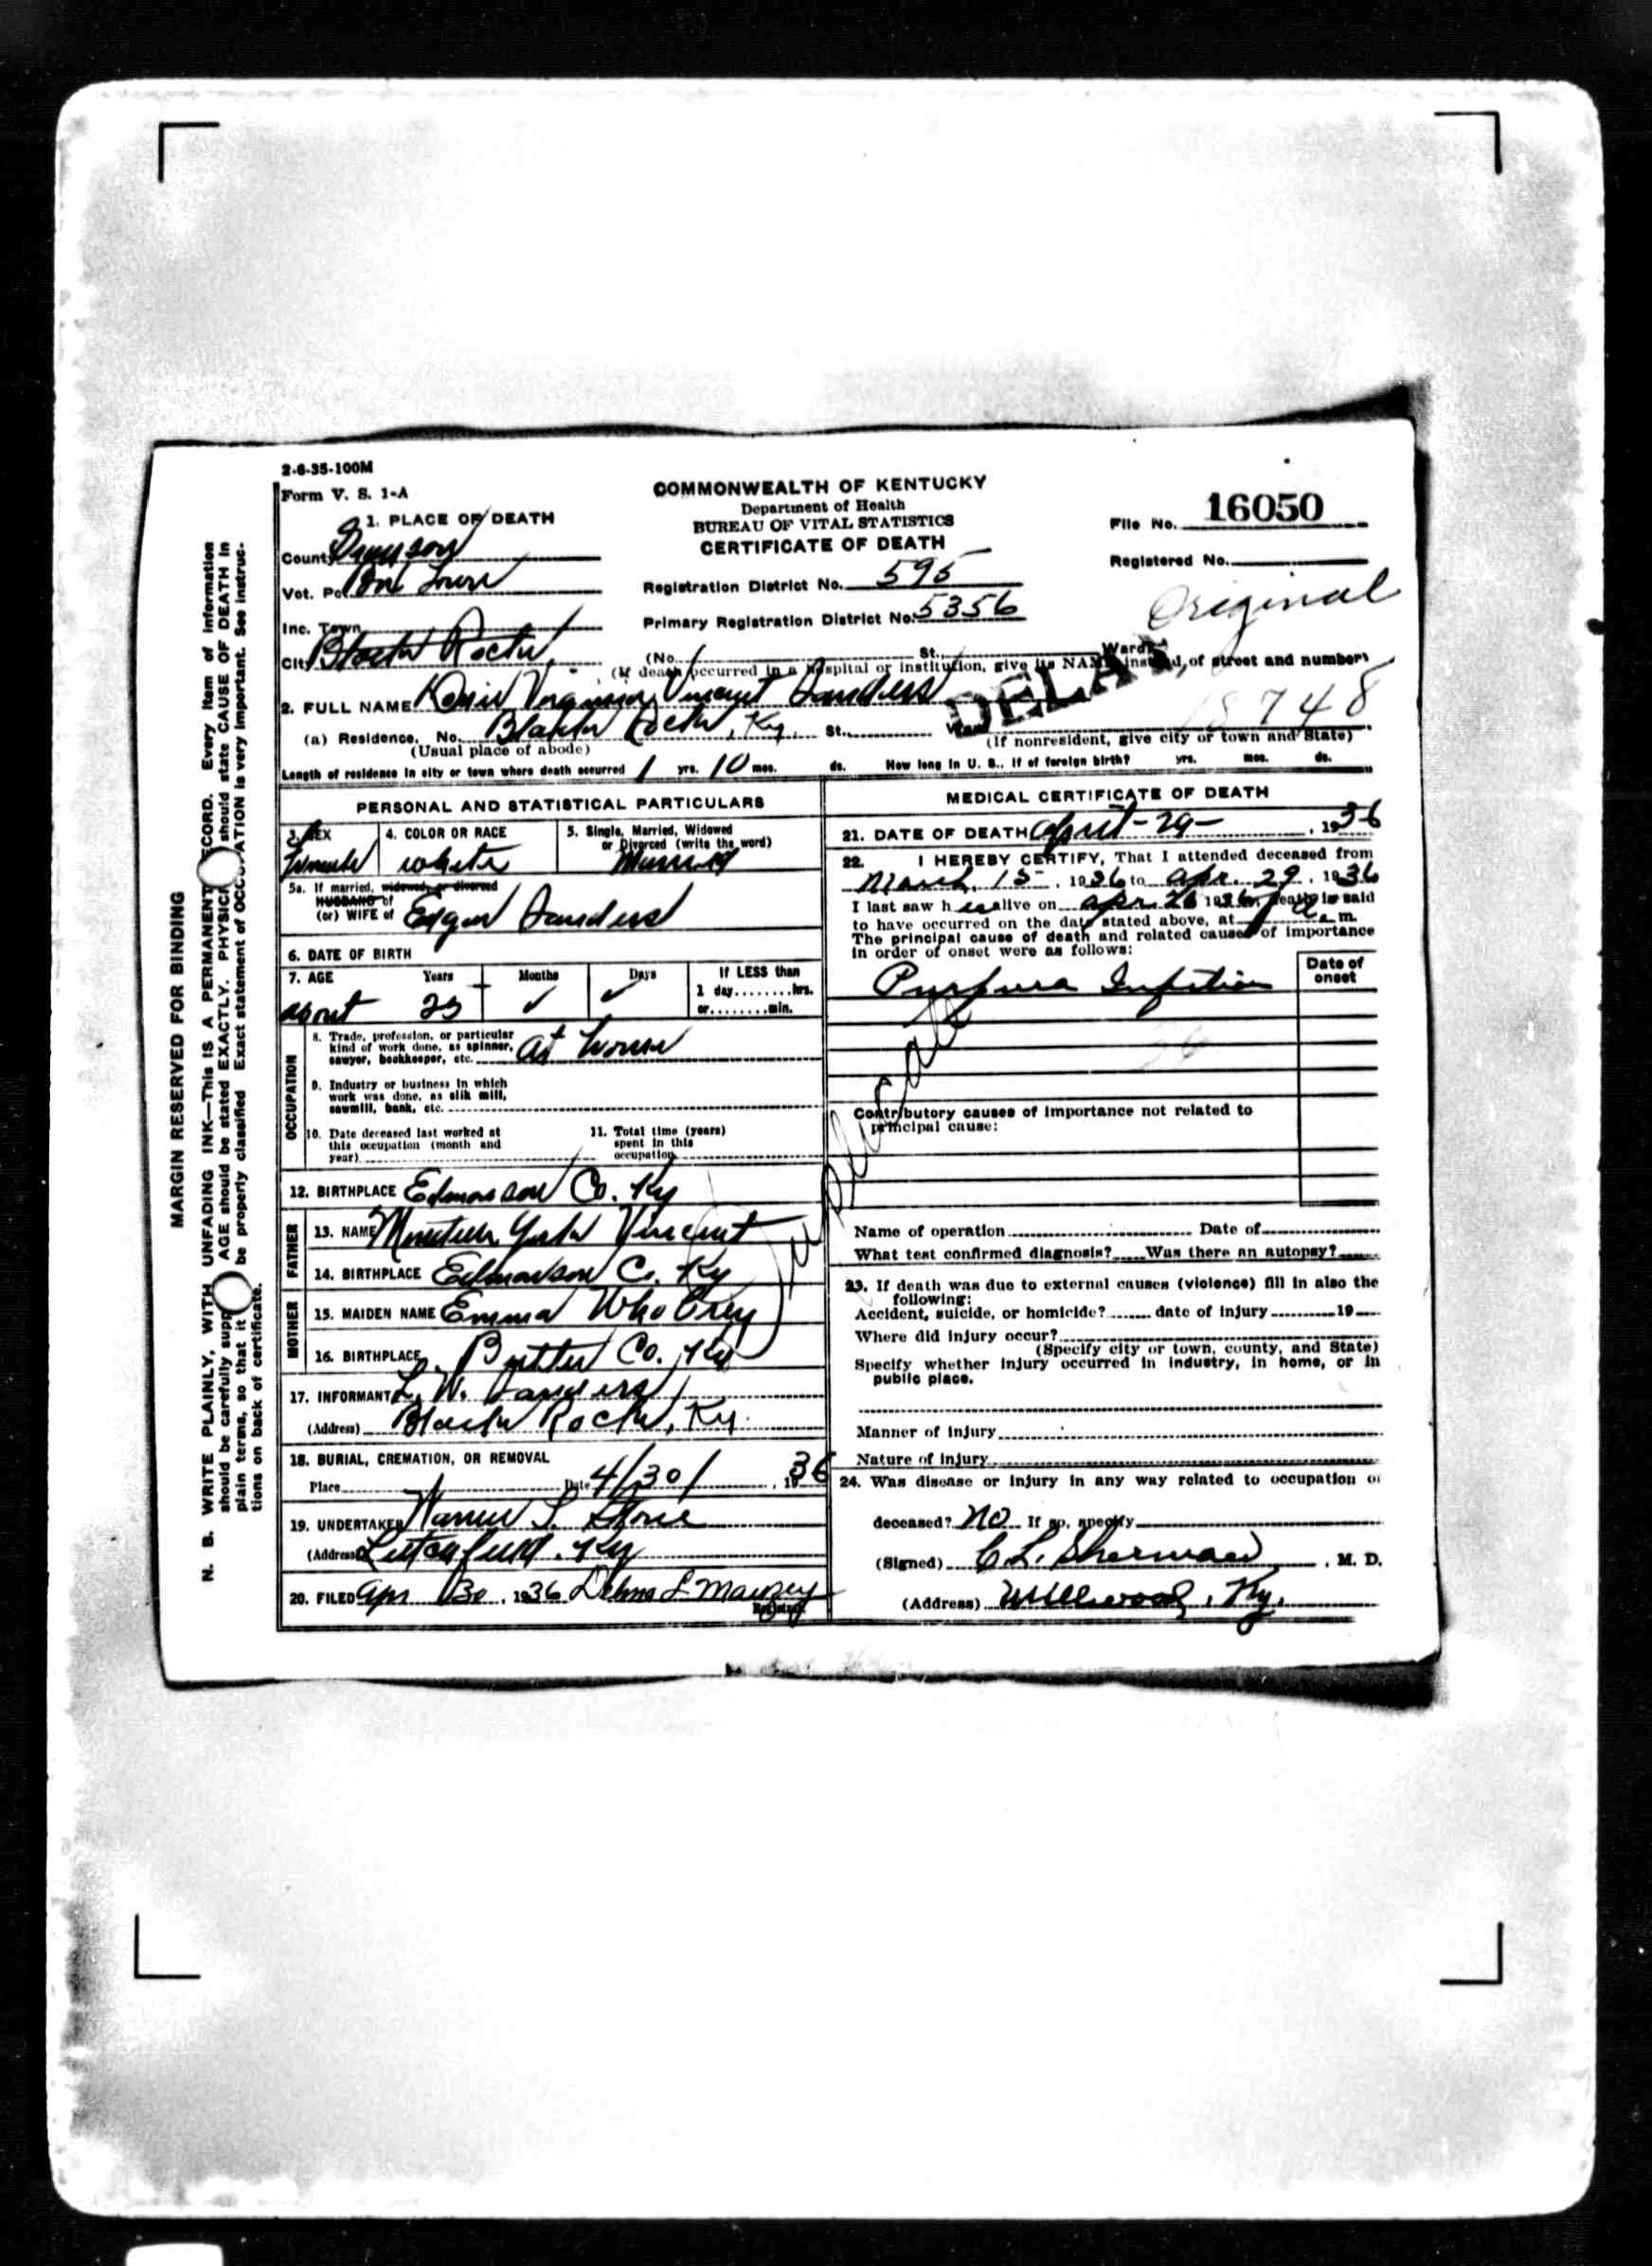 2-6-35-100M
Form V. S. 1-A
COMMONWEALTH OF KENTUCKY
Department of Health
BUREAU OF VITAL STATISTICS
CERTIFICATE OF DEATH
File No. 16050
Registered No.
Original
1. PLACE OF DEATH
County Grayson
Vot. Pct.
Inc. Town
City Black Rock,
Registration District No. 595
Primary Registration District No. 5356
(No. St., Ward)
(If death occurred in a hospital or institution, give its NAME instead of street and number)
DELAY
18748
2. FULL NAME Vincent Sanders
(a) Residence. No. Black Rock, Ky. St.,
(Usual place of abode)
(If nonresident, give city or town and State)
Length of residence in city or town where death occurred 1 yrs. 10 mos. ds. How long in U. S., if of foreign birth? yrs. mos. ds.
PERSONAL AND STATISTICAL PARTICULARS
3. SEX Female
4. COLOR OR RACE white
5. Single, Married, Widowed
or Divorced (write the word)
5a. If married, widowed, or divorced
HUSBAND of
(or) WIFE of Edgar Sanders
6. DATE OF BIRTH
7. AGE Years Months Days If LESS than
1 day........hrs.
or........min.
about 25
OCCUPATION
8. Trade, profession, or particular
kind of work done, as spinner,
sawyer, bookkeeper, etc. at home
9. Industry or business in which
work was done, as silk mill,
sawmill, bank, etc.
10. Date deceased last worked at
this occupation (month and
year)
11. Total time (years)
spent in this
occupation
12. BIRTHPLACE Edmonson Co. Ky
FATHER
13. NAME Vincent
14. BIRTHPLACE Edmonson Co. Ky
MOTHER
15. MAIDEN NAME Emma
16. BIRTHPLACE Butler Co. Ky
17. INFORMANT L. W. Sanders
(Address) Black Rock, Ky.
18. BURIAL, CREMATION, OR REMOVAL
Place Date 4/30/, 1936
19. UNDERTAKER Stone
(Address) Leitchfield, Ky
20. FILED Apr 30, 1936
Registrar.
MEDICAL CERTIFICATE OF DEATH
21. DATE OF DEATH April-29-, 1936
22. I HEREBY CERTIFY, That I attended deceased from
March. 15, 1936 to Apr. 29, 1936
I last saw her alive on Apr. 26 1936, death is said
to have occurred on the date stated above, at a. m.
The principal cause of death and related causes of importance
in order of onset were as follows:
Date of
onset
Purpura Infection
Duplicate
Contributory causes of importance not related to
principal cause:
Name of operation Date of
What test confirmed diagnosis? Was there an autopsy?
23. If death was due to external causes (violence) fill in also the
following:
Accident, suicide, or homicide? date of injury 19
Where did injury occur?
(Specify city or town, county, and State)
Specify whether injury occurred in industry, in home, or in
public place.
Manner of injury
Nature of injury
24. Was disease or injury in any way related to occupation of
deceased? no If so, specify
(Signed) C. L. Sherman, M. D.
(Address) Millwood, Ky.
MARGIN RESERVED FOR BINDING
N. B. WRITE PLAINLY, WITH UNFADING INK—THIS IS A PERMANENT RECORD. Every item of information
should be carefully supp AGE should be stated EXACTLY. PHYSICI should state CAUSE OF DEATH in
plain terms, so that it be properly classified Exact statement of OCCUPATION is very important. See instruc-
tions on back of certificate.